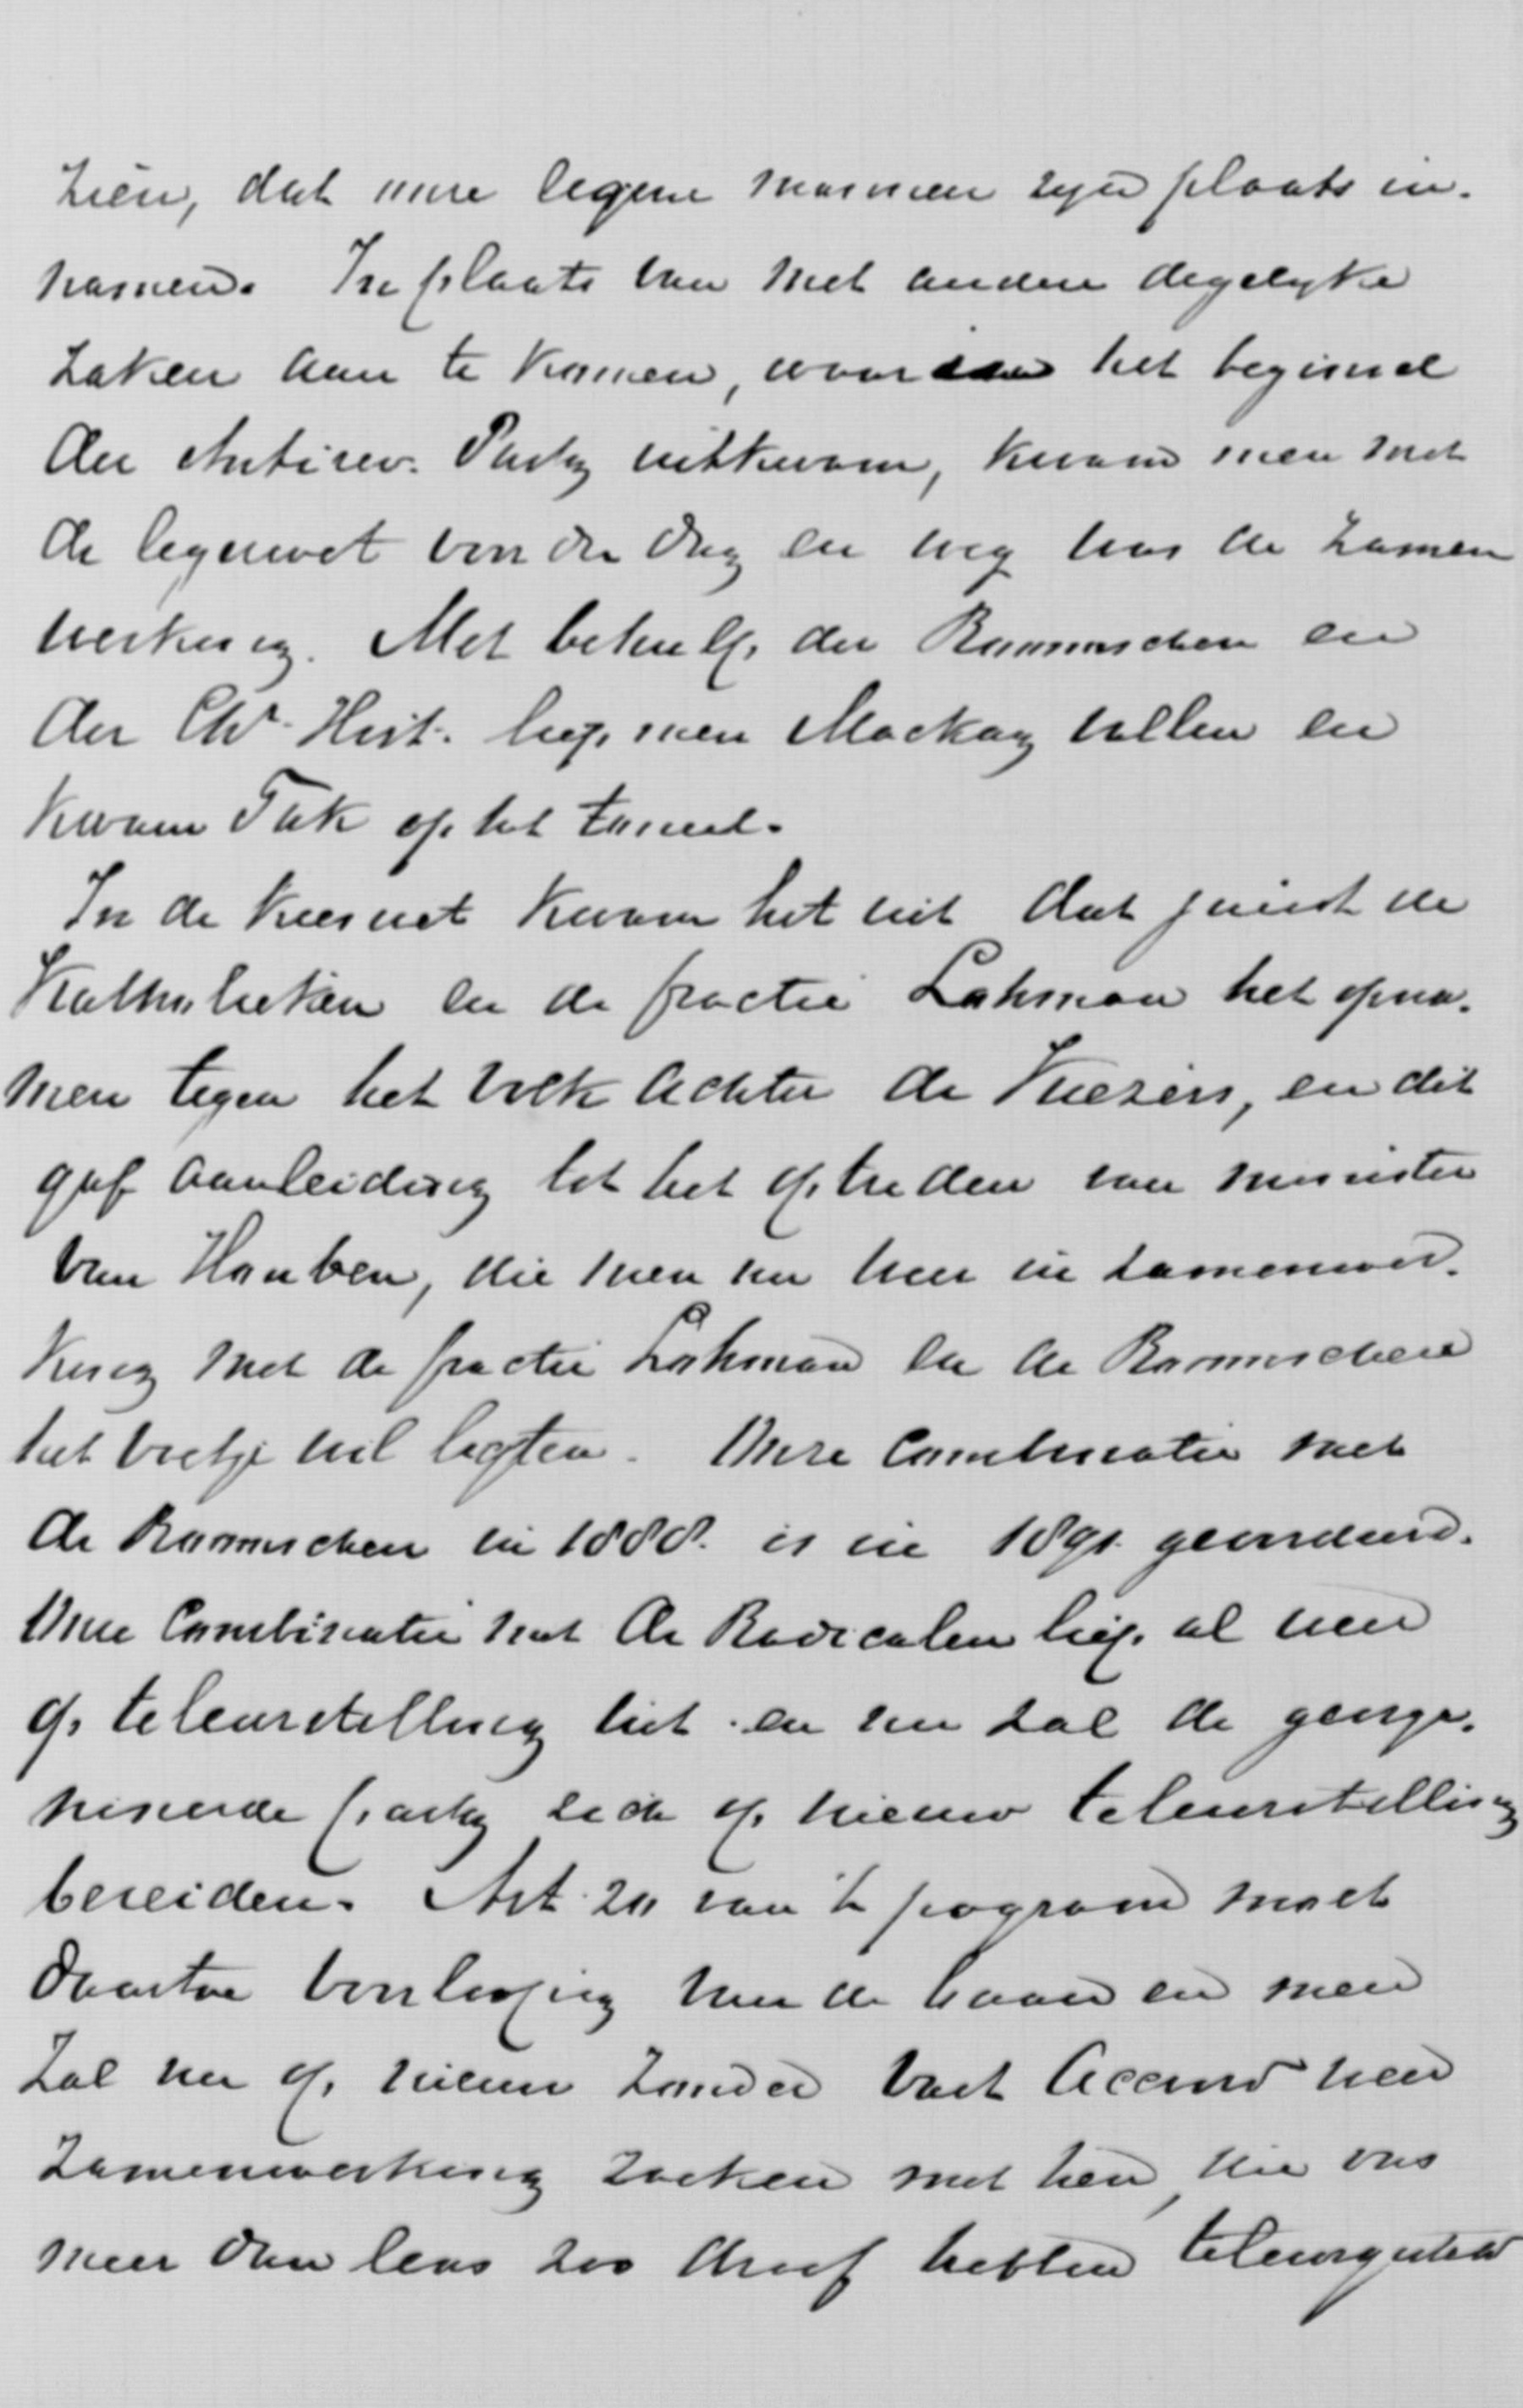 zien, dat onze eigene mannen zijn plaats in-
namen. In plaats van met andere degelyke
zaken aan te komen, waar het beginsel
der Antirev. Party uitkwam, kwam men met
de legerwet voor den dag en weg was de zamen
werking. Met behulp der Roomschen en
der Chr. Hist. liep men Mackay vallen en
kwam Tak op het tooneel.
In de Kieswet kwam het uit dat juist de
Katholieken en de fractie Lohman het opna-
men tegen het volk achter de Kiezers, en dit
gaf aanleiding tot het optreden van minister
van Houten, die men nu weer in zamenwer-
king met de fractie Lohman en de Roomschen
het voetje wil ligten. Onze Combinatie met
de Roomschen in 1888. is in 1891. geëindigd.
Onze Combinatie met de Radicalen liep al weer
op teleurstelling uit en nu zal de georga-
niseerde party zich op nieuw teleurstelling
bereiden. Art. 20 van 't program moet
daartoe voorloopig van de baan en men
zal nu op nieuw zonder vast accoord weer
zamenwerking zoeken met hen, die ons
meer dan eens zoo droef hebben teleurgesteld